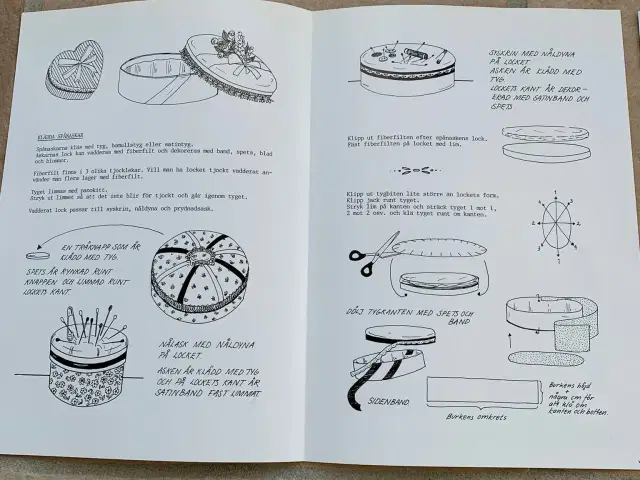 KLÄDDA SPÅNASKAR
Spånaskarna kläs med tyg, bomullstyg eller satintyg.
Askarnas lock kan vadderas med fiberfilt och dekoreras med band, spets, blad
och blommor.
Fiberfilt finns i 3 olika tjocklekar. Vill man ha locket tjockt vadderat an-
vänder man flera lager med fiberfilt.
Tyget limmas med panokitt.
Stryk ut limmet så att det inte blir för tjockt och går igenom tyget.
Vadderat lock passar till syskrin, nåldyna och prydnadsask.
EN TRÄKNAPP SOM ÄR
KLÄDD MED TYG.
SPETS ÄR RYNKAD RUNT
KNAPPEN OCH LIMMAD RUNT
LOCKETS KANT.
NÅLASK MED NÅLDYNA
PÅ LOCKET.
ASKEN ÄR KLÄDD MED TYG
OCH PÅ LOCKETS KANT ÄR
SATINBAND FAST LIMMAT
SYSKRIN MED NÅLDYNA
PÅ LOCKET
ASKEN ÄR KLÄDD MED
TYG
LOCKETS KANT ÄR DEKOR-
ERAD MED SATINBAND OCH
SPETS
Klipp ut fiberfilten efter spånaskens lock.
Fäst fiberfilten på locket med lim.
Klipp ut tygbiten lite större än lockets form.
Klipp jack runt tyget.
Stryk lim på kanten och sträck tyget 1 mot 1,
2 mot 2 osv. och klä tyget runt om kanten.
DÖLJ TYGKANTEN MED SPETS OCH
BAND
SIDENBAND.
Burkens omkrets
Burkens höjd
+
några cm för
att klä om
kanten och botten.